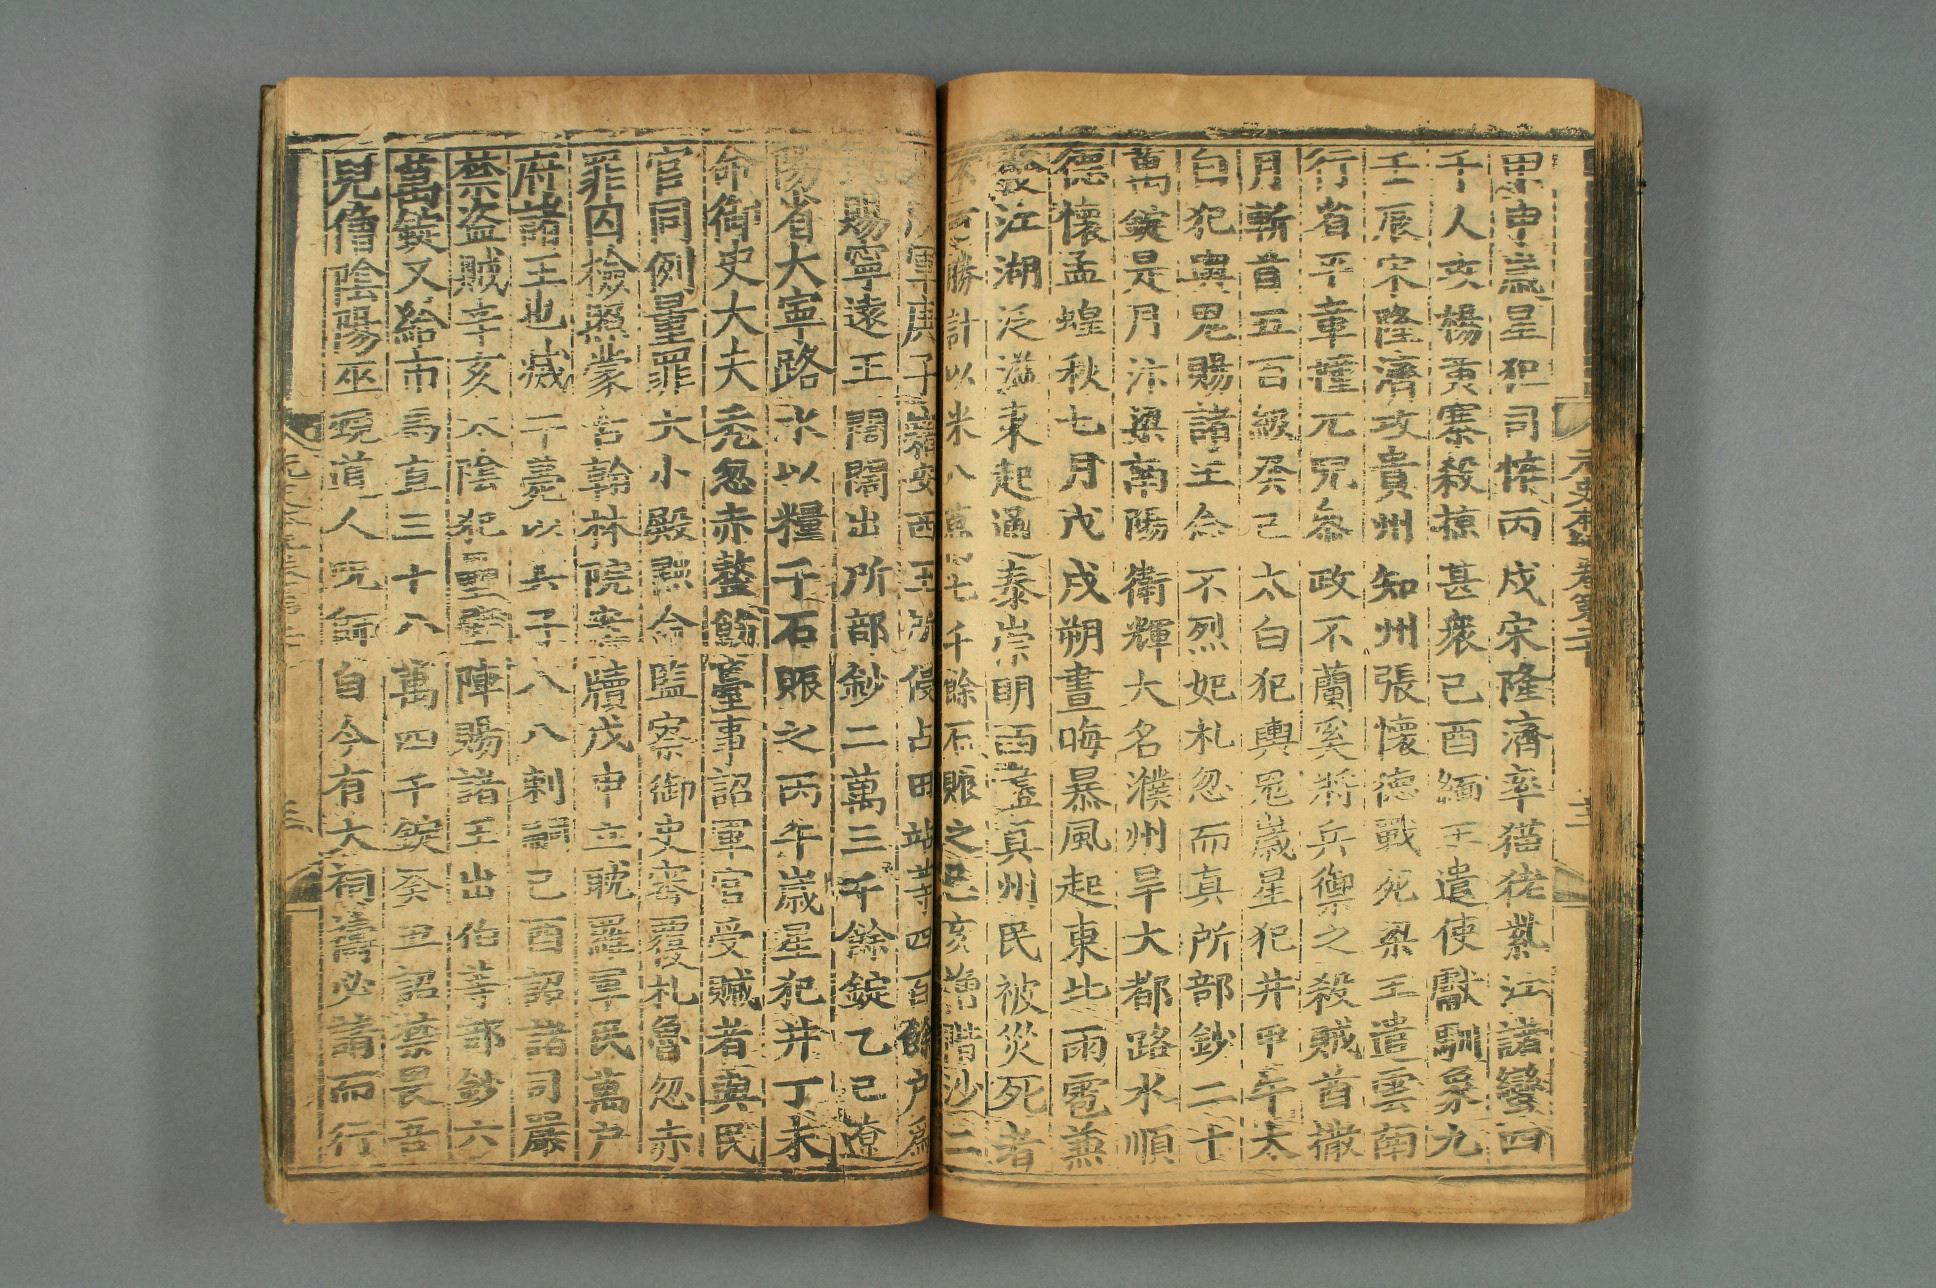 甲申歲星犯司怪丙戌宋隆濟率猫狫紫江諸蠻四
千人攻楊黃寨殺掠甚衆己酉緬王遣使獻馴象九
壬辰宋隆濟攻貴州知州張懷德戰死梁王遣雲南
行省平章幢兀兒參政不蘭奚將兵禦之殺賊酋撒
月斬首五百級癸巳太白犯輿鬼歲星犯井甲午太
白犯輿鬼賜諸王念不烈妃札忽而真所部鈔二十
萬錠是月汴梁南陽衛輝大名濮州旱大都路水順
德懷孟蝗秋七月戊戌朔晝晦暴風起東北雨雹兼
發江湖泛溢東起通泰崇明西盡真州民被災死者
不可勝計以米八萬七千餘石賑之己亥增階沙二
軍庚子籍安西王所侵占田站等四百餘户爲
賜寧遠王闊闊出所部鈔二萬三千餘錠乙巳遼
陽省大寧路水以糧千石賑之丙午歲星犯井丁未
命御史大夫禿忽赤整飭臺事詔軍官受贓者與民
官同例量罪大小殿黜命監察御史審覆札魯忽赤
罪囚檢照蒙古翰林院案牘戊申立耽羅軍民萬户
府諸王也滅干薨以其子八八剌嗣己酉詔諸司嚴
禁盜賊辛亥太陰犯壘壁陣賜諸王出伯等部鈔六
萬錠又給市馬直三十八萬四千錠癸丑詔禁畏吾
兒僧陰陽巫覡道人呪師自今有大祠禱必請而行
元史本紀卷第二十